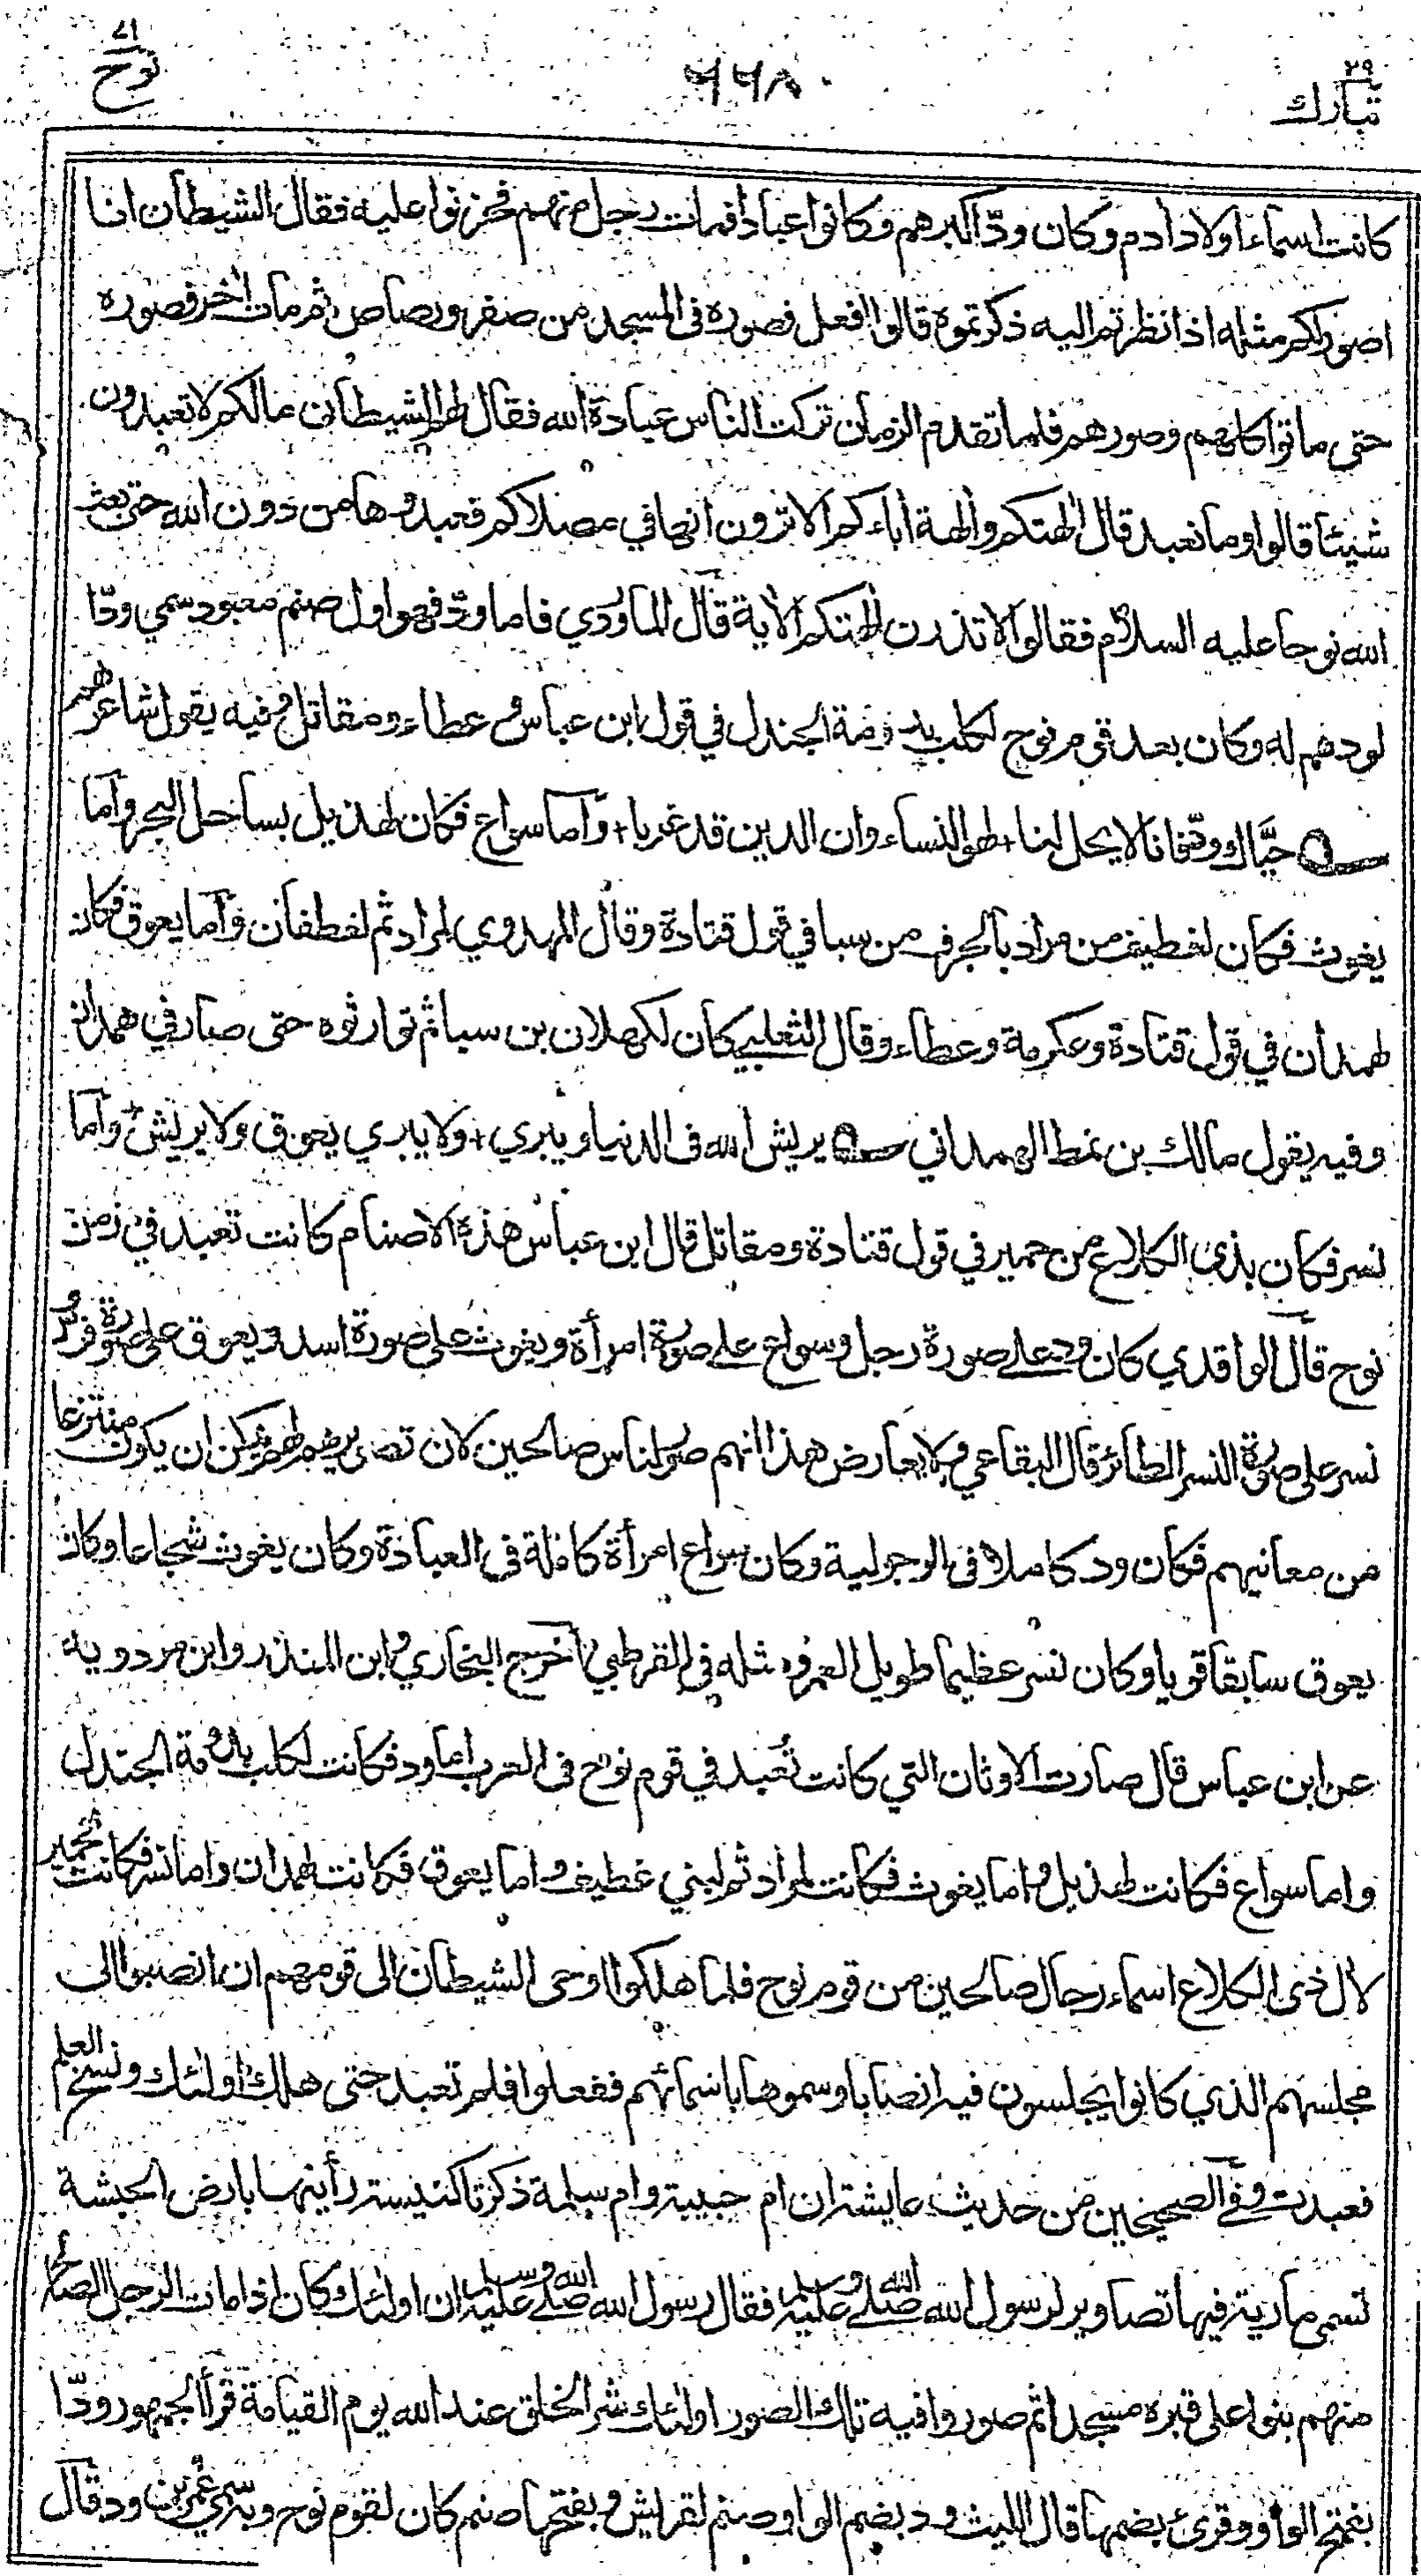 ٢٩ تبارك
٦٦٨
٧١ نوح
كانت اسماء اولاد ادم وكان ودّ اكبرهم وكانوا عبادا فمات رجل منهم فحزنوا عليه فقال الشيطان انا
اصور لكم مثله اذا نظرتم اليه ذكرتموه قالوا افعل فصوره فى المسجد من صفر ورصاص ثم مات اخر فصوره
حتى ماتوا كلهم وصورهم فلما تقدم الزمان تركت الناس عبادة الله فقال لهم الشيطان مالكم لا تعبدون
شيئا قالوا وما نعبد قال الهتكم والهة اباءكم الا ترون انها في مصلاكم فعبدوها من دون الله حتى بعث
الله نوحا عليه السلام فقالوا لا تذرن الهتكم الأية قال الماوردي فاما ودّ فهو اول صنم معبود سمي ودّا
لودهم له وكان بعد قوم نوح لكلب بدومة الجندل في قول ابن عباس وعطاء ومقاتل وفيه يقول شاعرهم
حيّاك ودّ فانا لا يحل لنا + لهو النساء وان الدين قد غربا + وأما سواع فكان لهذيل بساحل البحر وأما
يغوث فكان لغطيف من مراد بالجرف من سبا في قول قتادة وقال المهدوي لمراد ثم لغطفان وأما يعوق فكان
لهمدان في قول قتادة وعكرمة وعطاء وقال الثعلبي كان لكهلان بن سبا ثم توارثوه حتى صار في همدان
وفيه يقول مالك بن نمط الهمداني يريش الله فى الدنيا ويبري + ولا يبري يعوق ولا يريش + وأما
نسر فكان بذى الكلاع من حمير في قول قتادة ومقاتل قال ابن عباس هذه الاصنام كانت تعبد في زمن
نوح قال الواقدي كان ود على صورة رجل وسواع على صورة امرأة ويغوث على صورة اسد ويعوق على صورة فرس و
نسر على صورة النسر الطائر قال البقاعي ولا يعارض هذا انهم صور لناس صالحين لان تصويرهم لهم يمكن ان يكون منتزعا
من معانيهم فكان ود كاملا فى الرجولية وكان سواع امرأة كاملة فى العبادة وكان يغوث شجاعا وكان
يعوق سابقا قويا وكان نسر عظيما طويل العمر ومثله فى القرطبي وأخرج البخاري وابن المنذر وابن مردويه
عن ابن عباس قال صارت الاوثان التي كانت تُعبد في قوم نوح فى العرب اما ود فكانت لكلب بدومة الجندل
واما سواع فكانت لهذيل واما يغوث فكانت لمراد ثم لبني غطيف واما يعوق فكانت لهمدان واما نسر فكانت لحمير
لال ذى الكلاع اسماء رجال صالحين من قوم نوح فلما هلكوا اوحى الشيطان الى قومهم ان انصبوا الى
مجلسهم الذي كانوا يجلسون فيه انصابا وسموها باسمائهم ففعلوا فلم تعبد حتى هلك اولئك ونسخ العلم
فعبدت وفي الصحيحين من حديث عايشة ان ام حبيبة وام سلمة ذكرتا كنيسة رأينها بارض الحبشة
تسمى مارية فيها تصاوير لرسول الله صلى الله عليه وسلم فقال رسول الله صلى الله عليه وسلم ان اولئك كان اذا مات الرجل الصالح
منهم بنوا على قبره مسجدا ثم صوروا فيه تلك الصور اولئك شر الخلق عند الله يوم القيامة قرأ الجمهور ودّا
بفتح الواو وقرئ بضمها قال الليث ود بضم الواو صنم لقريش وبفتحها صنم كان لقوم نوح وبه سمي عمرو بن ود قال